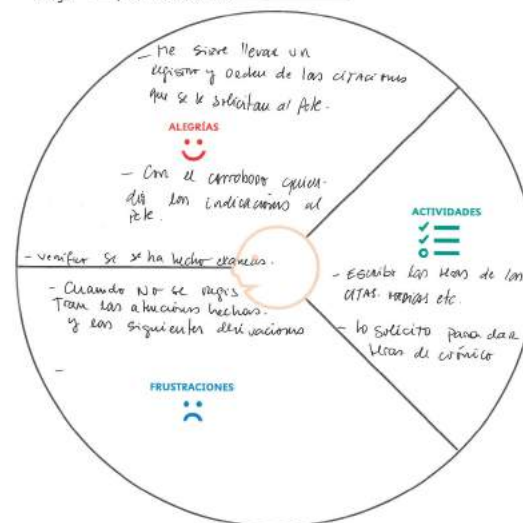 - Me sirve llevar un
registro y orden de las citaciones
que se le solicitan al Pcte.
ALEGRÍAS
- Con el corroboro quien
dio las indicaciones al
pcte.
- verificar si se ha hecho exámenes.
ACTIVIDADES
- Escribo las Horas de las
CITAS. etc.
- Lo solicito para dar
Horas de crónico
- Cuando NO se regis
Tran las atenciones hechas.
y las siguientes derivaciones
-
FRUSTRACIONES